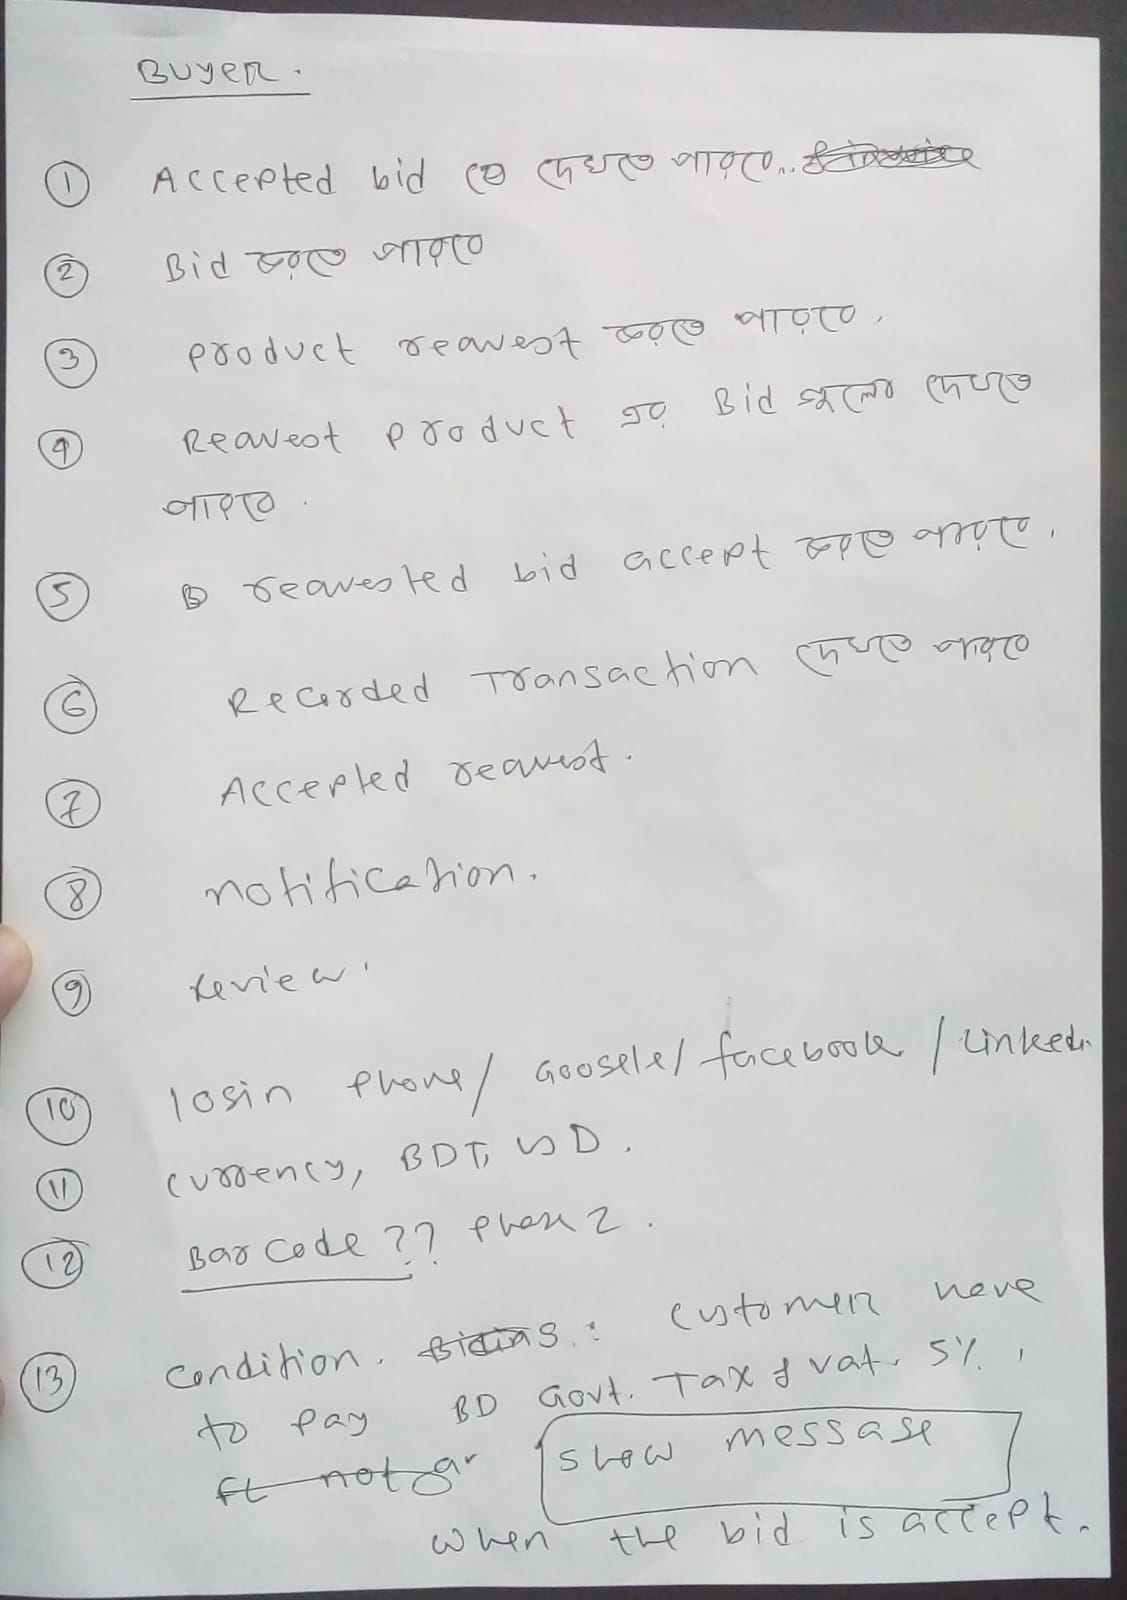 Buyer.
① Accepted bid কে দেখতে পারবে..
② Bid করতে পারবে
③ product request করতে পারবে.
④ Request product এর Bid গুলো দেখতে
পারবে.
⑤ requested bid accept করতে পারবে.
⑥ Recorded Transaction দেখতে পারবে
⑦ Accepted request.
⑧ notification.
⑨ review.
⑩ login phone/ Google/ facebook / Linkedin
⑪ currency, BDT, USD.
⑫ Bar code ?? phase 2.
⑬ condition. Biding: customer have
to pay BD Govt. Tax & vat. 5%.
show message
when the bid is accept.